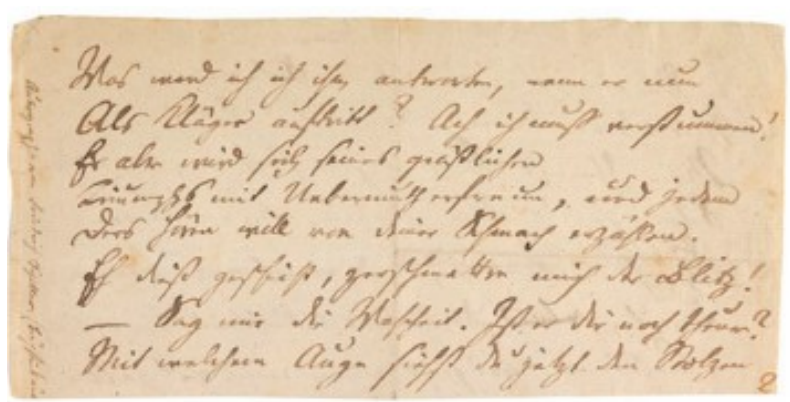 Was werd ich ich ihm antworten, wenn er nun
Als Kläger auftritt? Ach ich muß verstummen!
Er aber wird sich seines gräßlichen
Triumphs mit Uebermuth erfreun, und jedem
Ders hören will von deiner Schmach erzählen.
Eh dieß geschieht, zerschmettre mich der Blitz!
— Sag mir die Wahrheit. Ist er dir noch theuer?
Mit welchem Auge siehst du jetzt den Stolzen
2